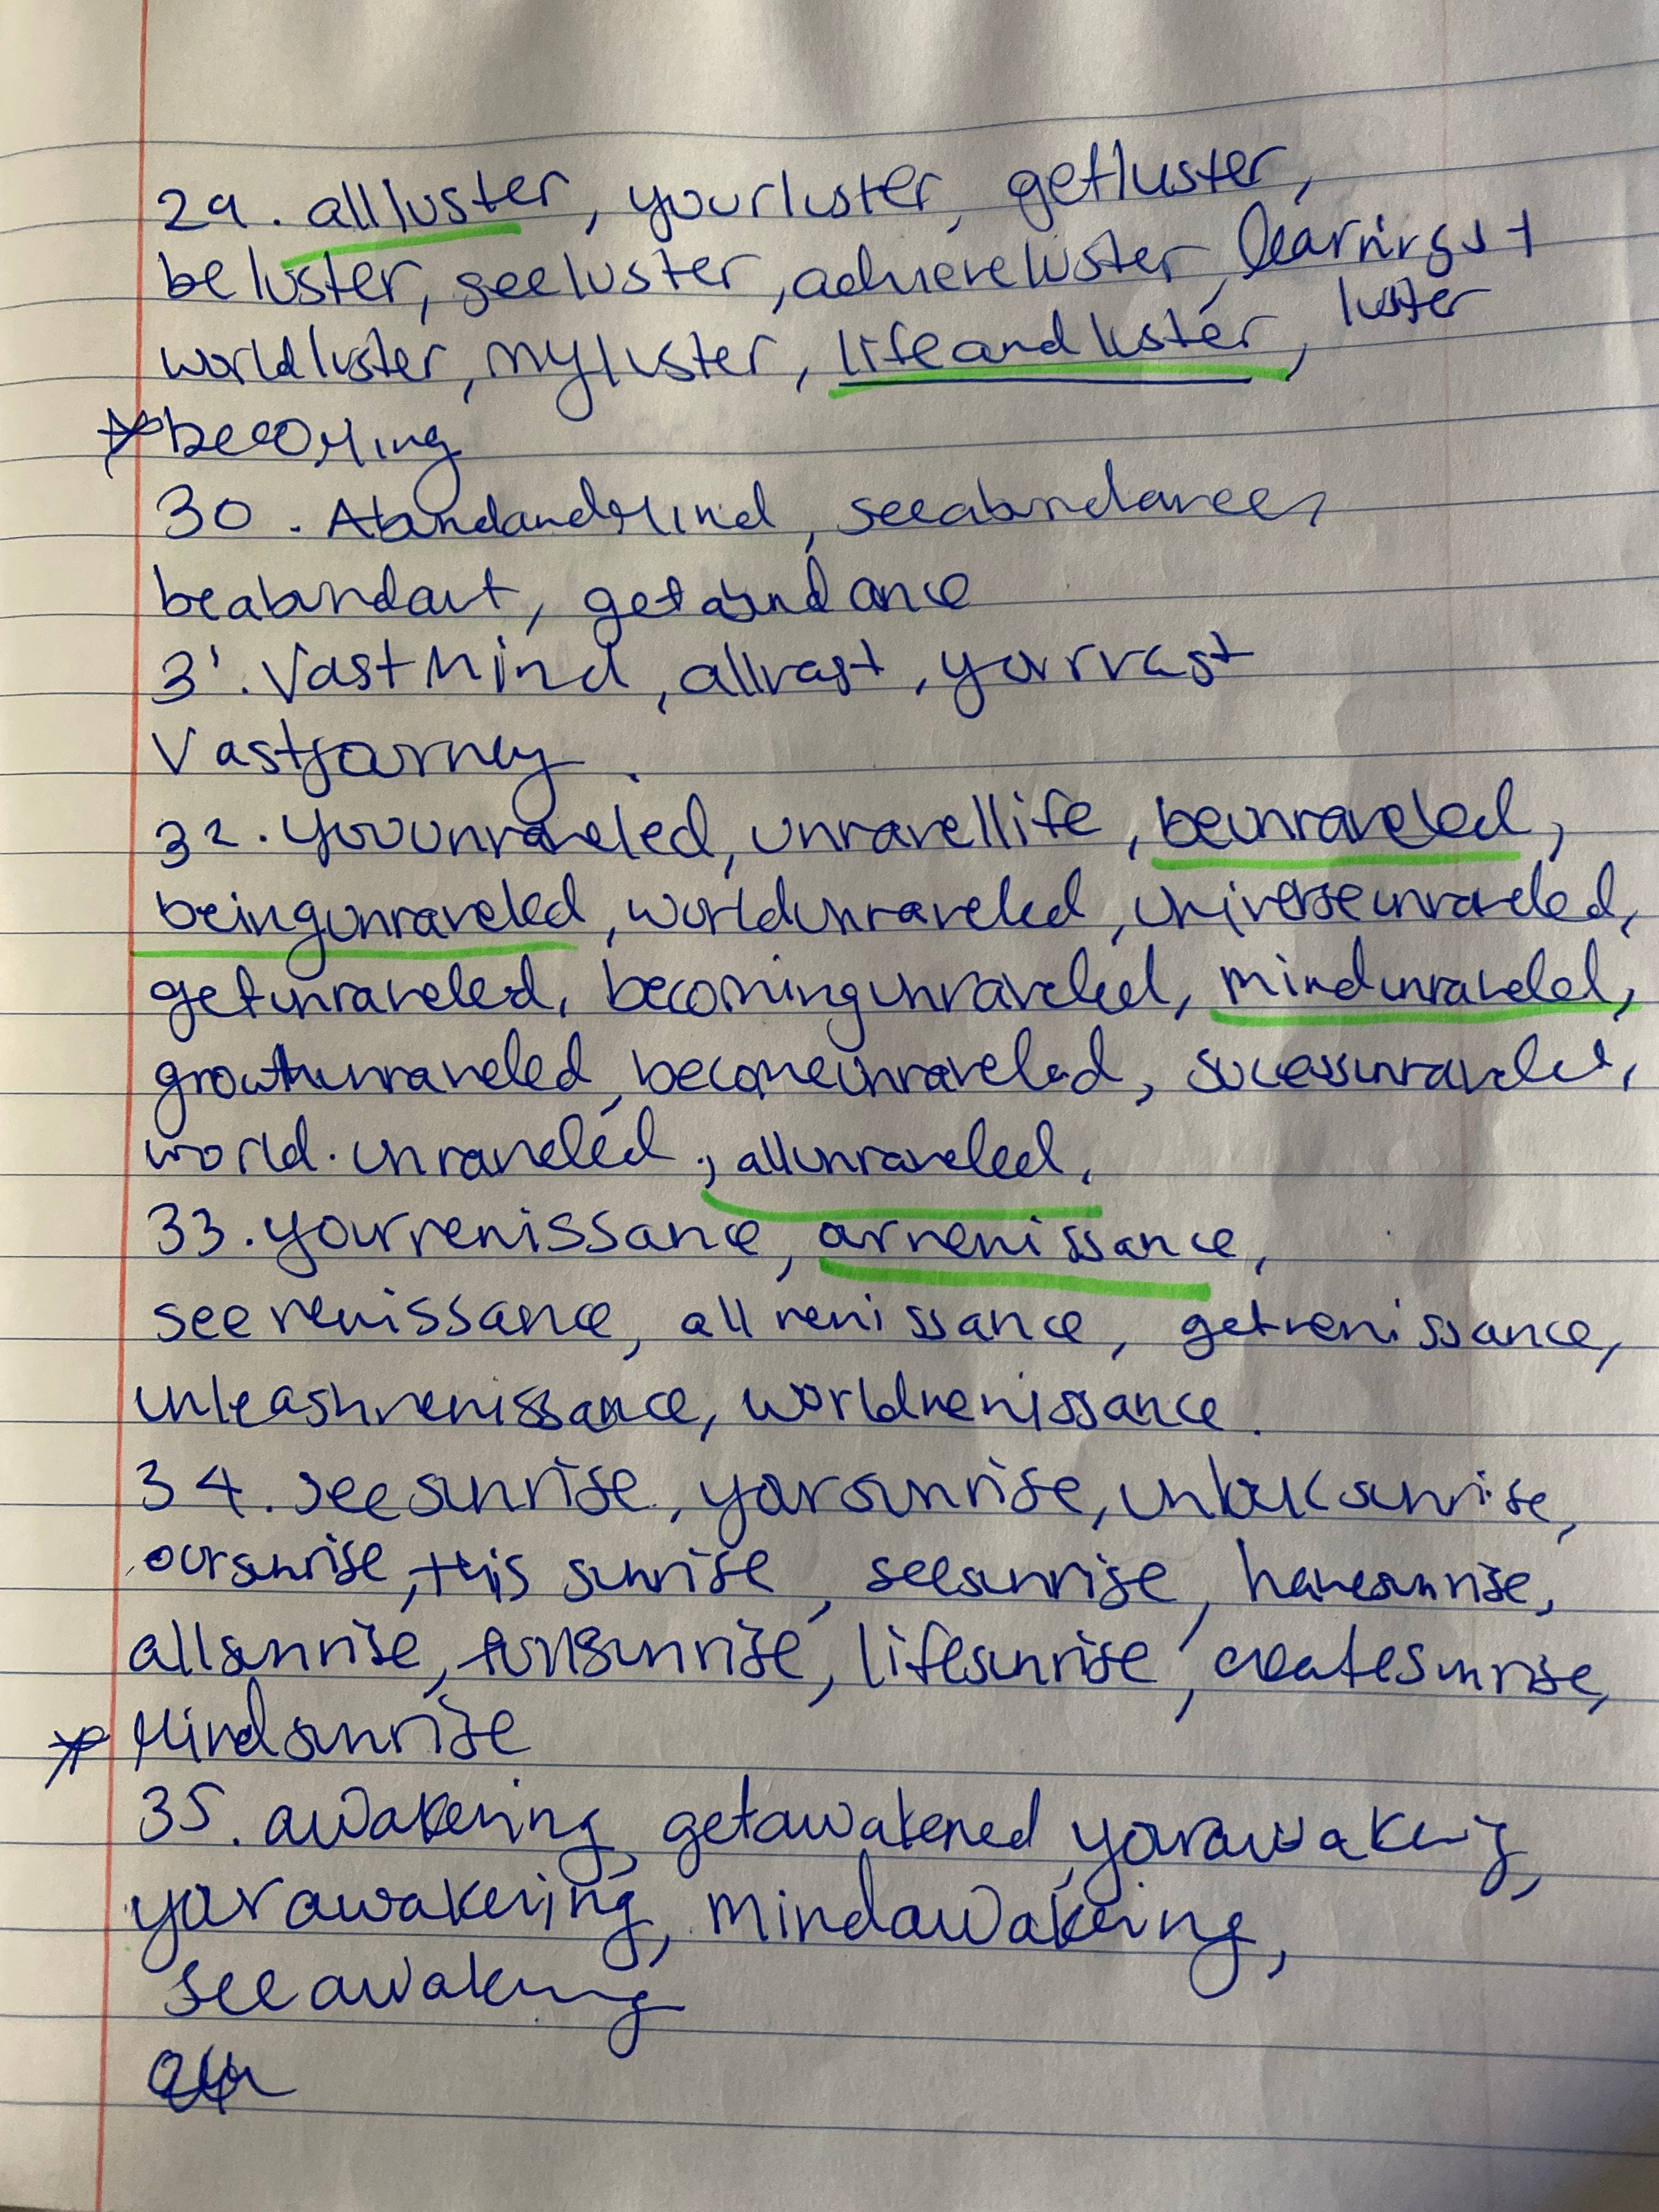 29. allluster, yourluster, getluster,
beluster, seeluster, achieveluster, learning
luster
worldluster, myluster, lifeandluster,
becoming
30. AbundandMind, seeabundance,
beabundant, getabundance
31. VastMind, allvast, yourvast
Vastjourney.
32. youunraveled, unravellife, beunraveled,
beingunraveled, worldunraveled, universeunraveled,
getunraveled, becomingunraveled, mindunraveled,
growthunraveled, becomeunraveled, sucessunraveled,
world.unraveled, allunraveled,
33. yourrenissance, ourrenissance,
seerenissance, allrenissance, getrenissance,
unleashrenissance, worldrenissance.
34. seesunrise, yoursunrise, unlocksunrise,
oursunrise, this sunrise, seesunrise, havesunrise,
allsunrise, fullsunrise, lifesunrise, createsunrise,
Mindsunrise
35. awakening, getawakened, yourawakening,
yourawakening, mindawakening,
seeawakening